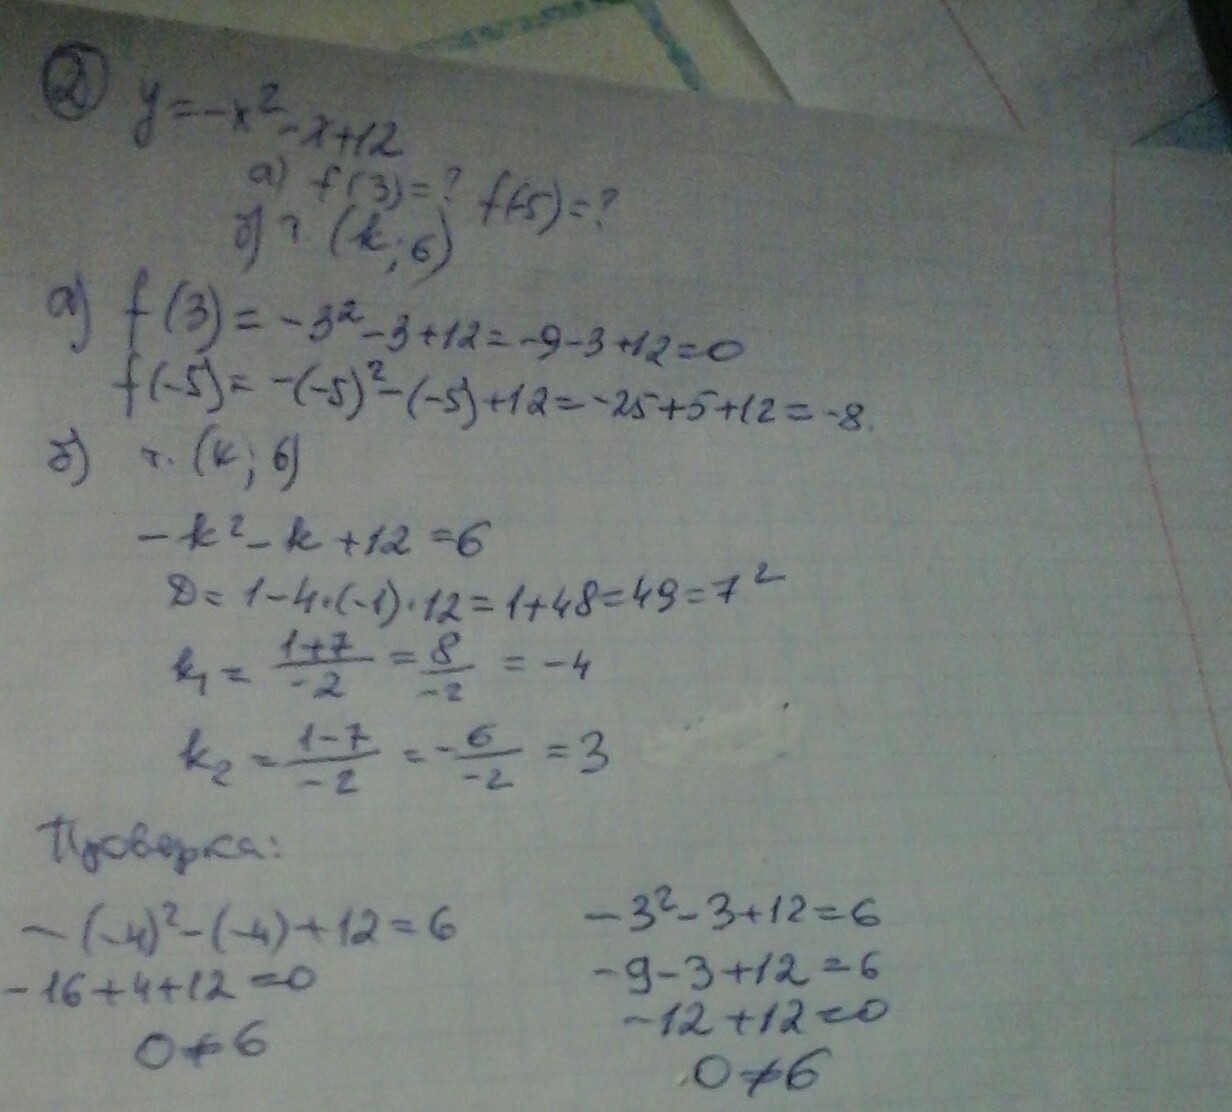 ② y=-x²-x+12
а) f(3)=? f(-5)=?
б) т. (k; 6)
а) f(3) = -3²-3+12=-9-3+12=0
f(-5)= -(-5)²-(-5)+12=-25+5+12=-8.
б) т. (k; 6)
-k²-k+12=6
D= 1-4·(-1)·12=1+48=49=7²
k₁ = \frac{1+7}{-2} = \frac{8}{-2} = -4
k₂ = \frac{1-7}{-2} = -\frac{6}{-2} = 3
Проверка:
-(-4)²-(-4)+12=6 -3²-3+12=6
-16+4+12=0 -9-3+12=6
-12+12=0
0≠6 0≠6